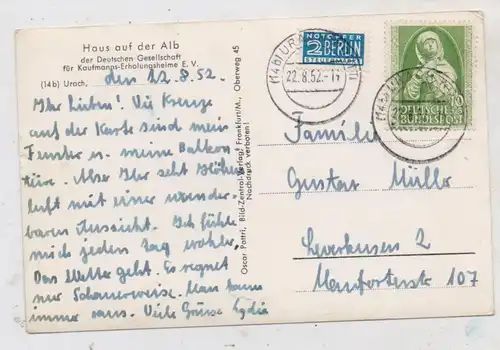 Haus auf der Alb
der Deutschen Gesellschaft
für Kaufmanns-Erholungsheime E. V.
(14b) Urach, den 22.8.52.
Ihr Lieben! Die Kreuze
auf der Karte sind mein
Fenster u. meine Balkon
türe. Also Ihr seht Höhen
luft mit einer wunder-
baren Aussicht. Ich fühle
mich jeden Tag wohler.
Das Wetter geht. Es regnet
nur Schauerweise. Man kann
immer raus. Viele Grüsse Lydia
Oscar Pattri, Bild-Zentral-Verlag, Frankfurt/M., Oberweg 45
Nachdruck verboten
NOTOPFER
2 BERLIN
STEUERMARKE
(14b) URACH
22.8.52.
10
DEUTSCHE
BUNDESPOST
Familie
Gustav Müller
Leverkusen 2
107